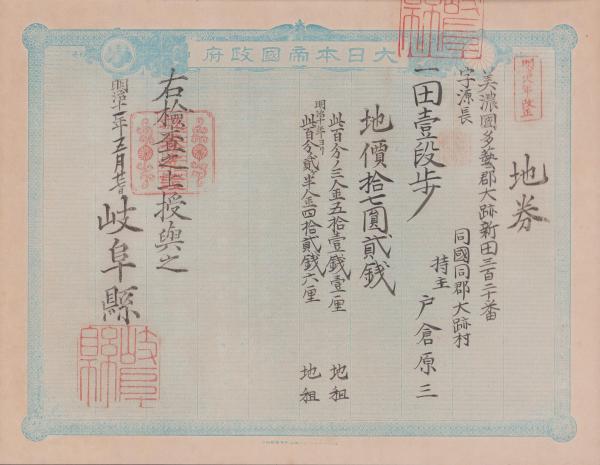 大日本帝國政府
地券
美濃國多藝郡大跡新田三百二十番
字源長
同國同郡大跡村
持主 戸倉原三
一田壹段歩
地價拾七圓貳銭
此百分ノ三金五拾壹銭壹厘 地租
明治十年ヨリ
此百分ノ貳半金四拾貳銭六厘 地租
右檢査之上授與之
岐阜縣